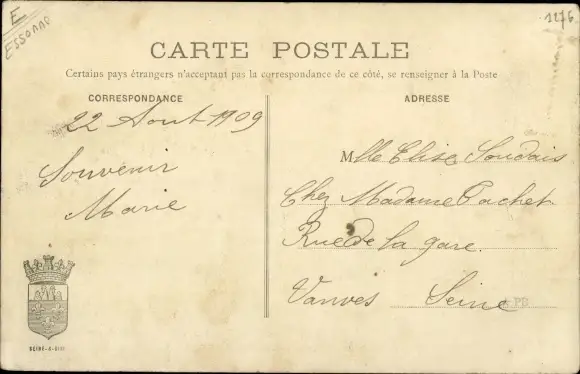 E
ESSONNE
1276
CARTE POSTALE
Certains pays étrangers n'acceptant pas la correspondance de ce côté, se renseigner à la Poste
CORRESPONDANCE
22 Aout 1909
Souvenir
Marie
SEINE-&-OISE
ADRESSE
Mlle Elise Soudais
Chez Madame Pachet
Rue de la gare.
Vanves Seine